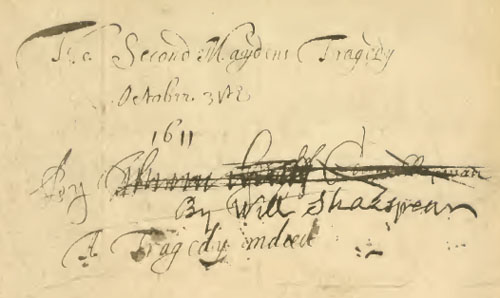 The Second Maydens Tragedy
October 31st
1611
By
By Will Shakspear
A Tragedy indeed